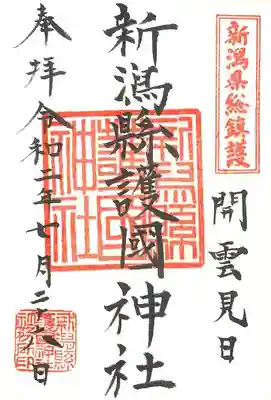 新潟県総鎮護
開雲見日
新潟縣護國神社
奉拝 令和二年七月二十八日